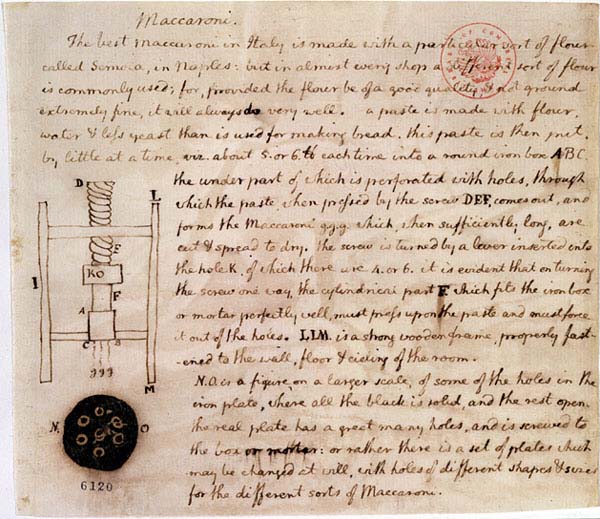 Maccaroni.
The best maccaroni in Italy is made with a particular sort of flour
called Semola, in Naples: but in almost every shop a different sort of flour
is commonly used; for, provided the flour be of a good quality, & not ground
extremely fine, it will always do very well. a paste is made with flour,
water & less yeast than is used for making bread. this paste is then put,
by little at a time, viz. about 5. or 6. ℔ each time into a round iron box ABC.
the under part of which is perforated with holes, through
which the paste, when pressed by the screw DEF, comes out, and
forms the Maccaroni g.g.g. which, when sufficiently long, are
cut & spread to dry. the screw is turned by a lever inserted into
the hole K, of which there are 4. or 6. it is evident that on turning
the screw one way, the cylindrical part F. which fits the iron box
or mortar perfectly well, must press upon the paste and must force
it out of the holes. LLM. is a strong wooden frame, properly fast-
-ened to the wall, floor & cieling of the room.
N.O. is a figure, on a larger scale, of some of the holes in the
iron plate, where all the black is solid, and the rest open.
the real plate has a great many holes, and is screwed to
the box or mortar: or rather there is a set of plates which
may be changed at will, with holes of different shapes & sizes
for the different sorts of Maccaroni.
D L
E
I KO
F
A
C B
ggg
M
N O
6120